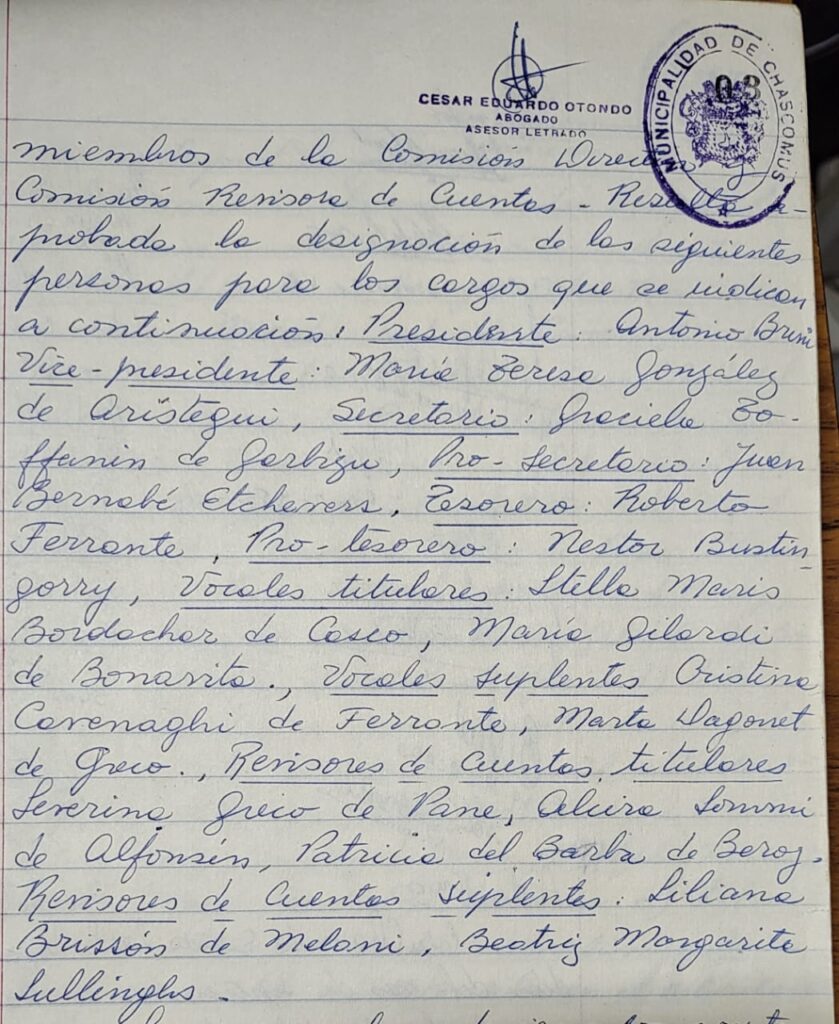 CESAR EDUARDO OTONDO
ABOGADO
ASESOR LETRADO
MUNICIPALIDAD DE CHASCOMUS
03
miembros de la Comisión Directiva y
Comisión Revisora de Cuentas - Resulta a-
probada la designación de las siguientes
personas para los cargos que se indican
a continuación: Presidente: Antonio Bruni
Vice-presidente: María Teresa González
de Arístegui, Secretario: Graciela Zo-
ffanin de Garbizu, Pro-secretario: Juan
Bernabé Etchevers, Tesorero: Roberto
Ferrante, Pro-tesorero: Nestor Bustin-
gorry, Vocales titulares: Stella Maris
Bordachar de Casco, María Gilardi
de Bonavita., Vocales suplentes Cristina
Cavenaghi de Ferrante, Marta Dagonet
de Greco., Revisores de Cuentas titulares
Severina Greco de Pane, Alcira Sommi
de Alfonsín, Patricia del Barba de Beroz.
Revisores de Cuentas suplentes: Liliana
Brissón de Melani, Beatriz Margarita
Sullinghs.